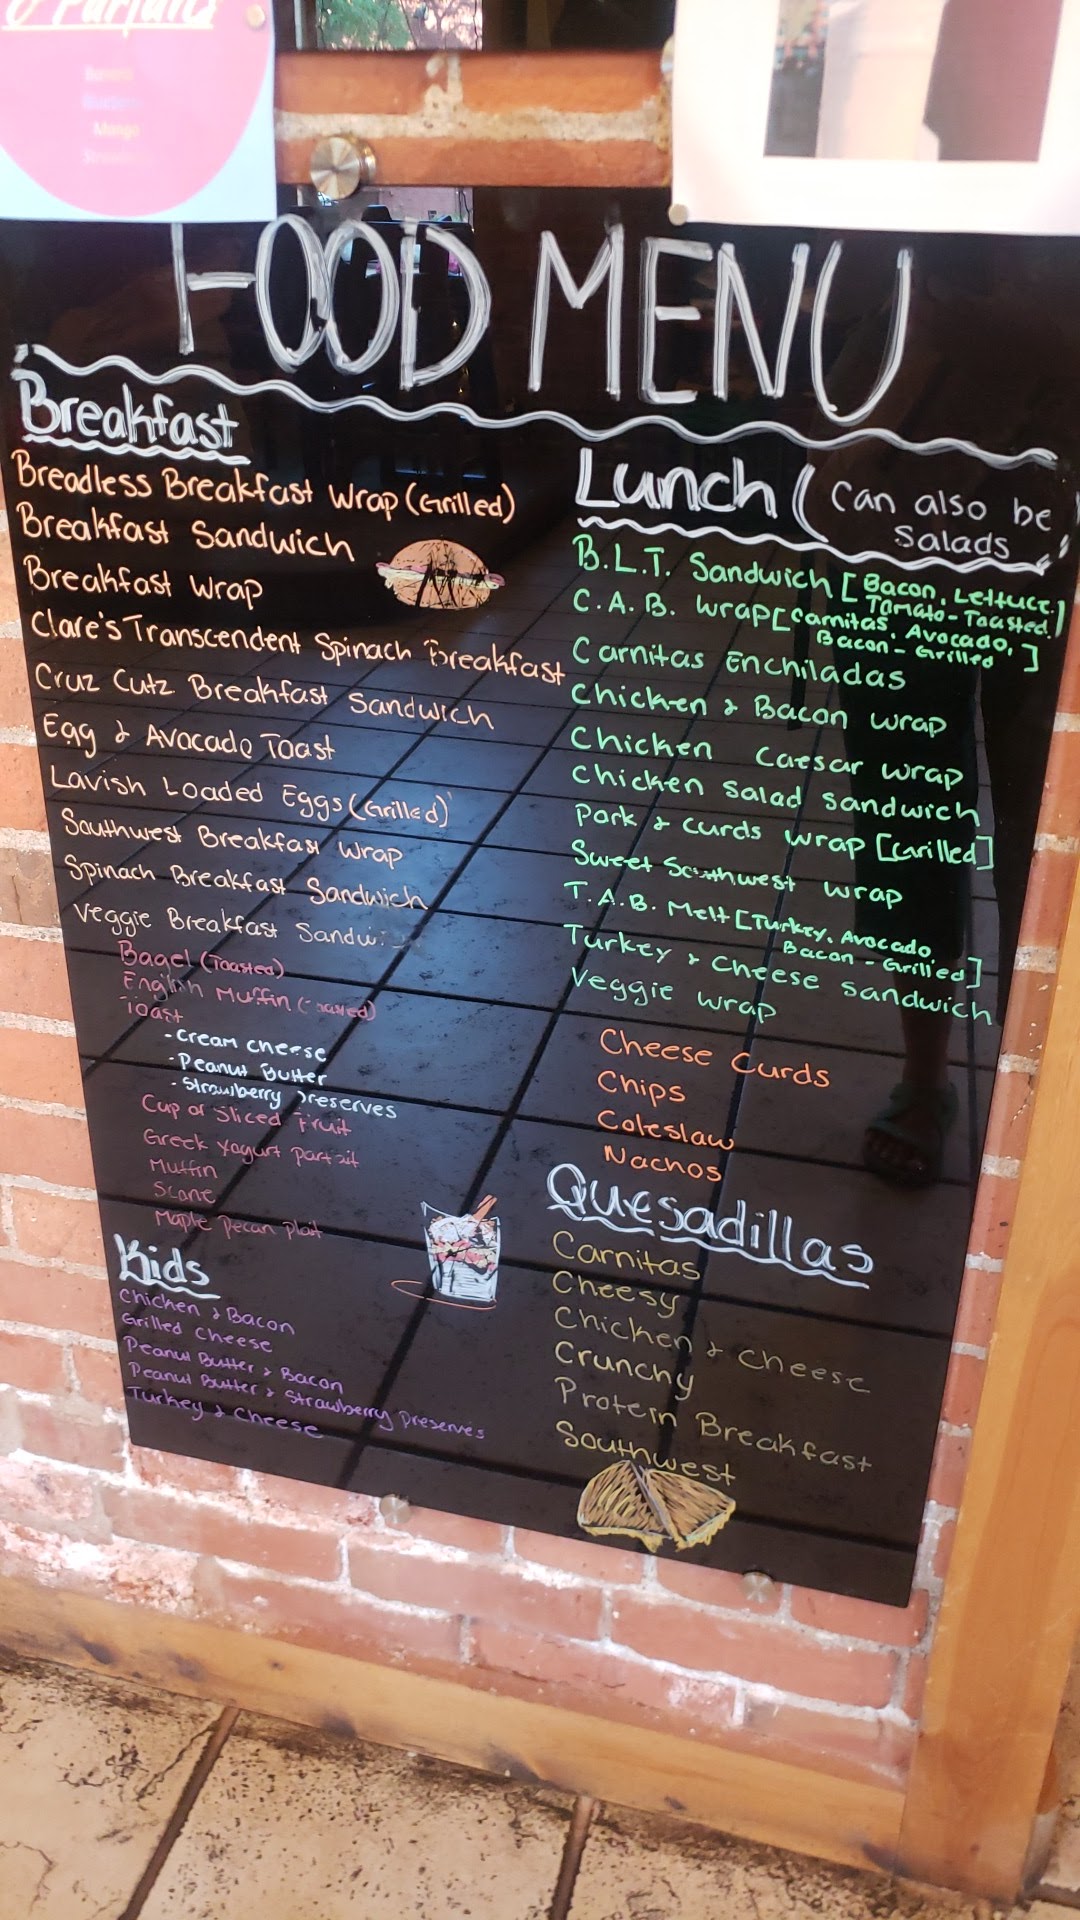 & Parfaits
Banana
Mango
FOOD MENU
Breakfast
Breadless Breakfast Wrap (Grilled)
Breakfast Sandwich
Breakfast Wrap
Clare's Transcendent Spinach Breakfast
Cruz Cutz Breakfast Sandwich
Egg & Avacado Toast
Lavish Loaded Eggs (Grilled)
Southwest Breakfast Wrap
Spinach Breakfast Sandwich
Veggie Breakfast Sandwi
Bagel (Toasted)
English Muffin (Toasted)
Toast
- Cream Cheese
- Peanut Butter
- Strawberry Preserves
Cup of Sliced Fruit
Greek Yogurt Parfait
Muffin
Scone
Maple Pecan Plait
Kids
Chicken & Bacon
Grilled Cheese
Peanut Butter & Bacon
Peanut Butter & Strawberry Preserves
Turkey & Cheese
Lunch (Can also be
Salads
B.L.T. Sandwich [Bacon, Lettuce,
Tomato - Toasted.]
C.A.B. Wrap [Carnitas, Avocado,
Bacon - Grilled]
Carnitas Enchiladas
Chicken & Bacon Wrap
Chicken Caesar Wrap
Chicken Salad Sandwich
Pork & Curds Wrap [Grilled]
Sweet Southwest Wrap
T.A.B. Melt [Turkey, Avocado,
Bacon - Grilled]
Turkey & Cheese Sandwich
Veggie Wrap
Cheese Curds
Chips
Coleslaw
Nachos
Quesadillas
Carnitas
Cheesy
Chicken & Cheese
Crunchy
Protein Breakfast
Southwest